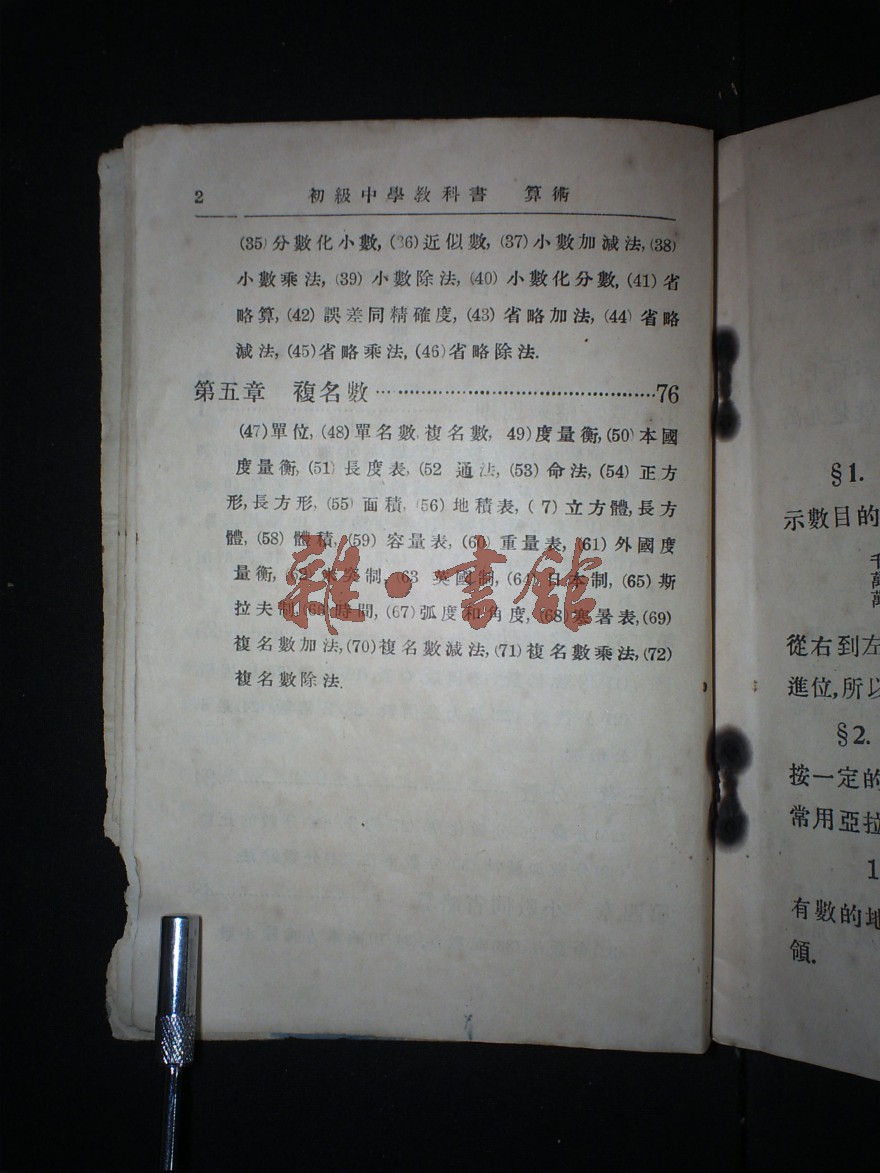 2 初級中學教科書 算術
(35)分數化小數, (36)近似數, (37)小數加減法, (38)
小數乘法, (39) 小數除法, (40) 小數化分數, (41) 省
略算, (42) 誤差同精確度, (43) 省略加法, (44) 省略
減法, (45)省略乘法, (46)省略除法.
第五章 複名數 ……………………………………76
(47)單位, (48)單名數, 複名數, 49)度量衡, (50)本國
度量衡, (51) 長度表, (52 通法, (53) 命法, (54) 正方
形, 長方形, (55) 面積, (56) 地積表, ( 7) 立方體, 長方
體, (58) 體積, (59) 容量表, (60) 重量表, (61) 外國度
量衡, (62) 米突制, (63 英國制, (64) 日本制, (65) 斯
拉夫制, (66) 時間, (67) 弧度和角度, (68)寒暑表, (69)
複名數加法, (70)複名數減法, (71)複名數乘法, (72)
複名數除法.
雜·書館
§1.
示數目的
千
萬
萬
從右到左
進位,所以
§2.
按一定的
常用亞拉
1
有數的地
領.